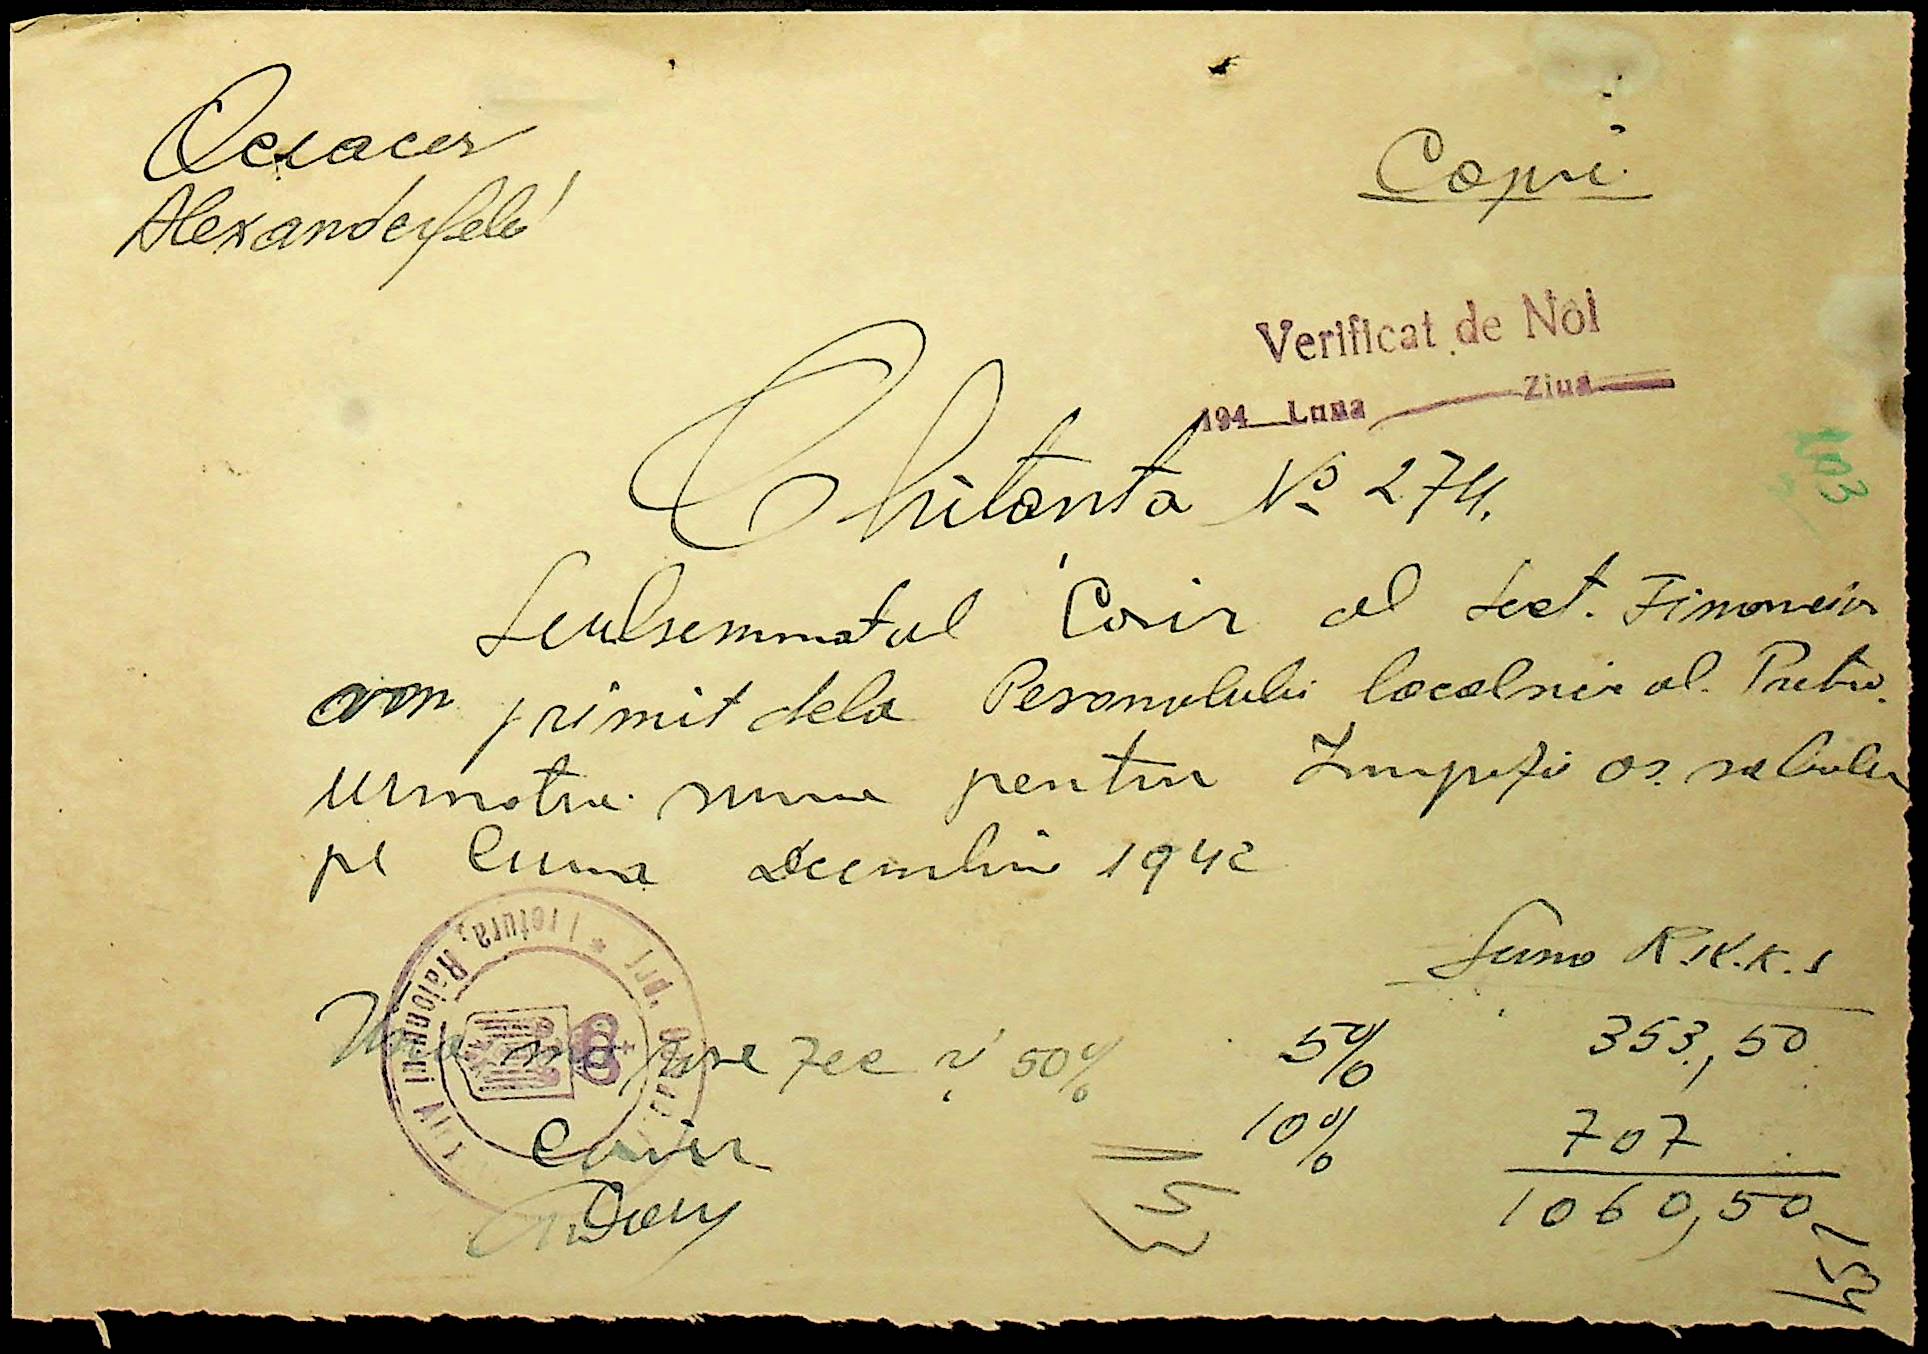 Alexanderfeld
Copie
Verificat de Noi
194 Luna Ziua
Chitanta No 274.
Subsemnatul Casir al Sect. Financiar
am primit dela Personalului localnic al Pretu.
urmatoa. suma pentru Impozi as. salariilor
pe Luna Decembrie 1942
Suma R.K.K.S
5% 353,50
10% 707
1060,50
Una mie șase zec și 50%
Casier
Pretura, Raionului
151